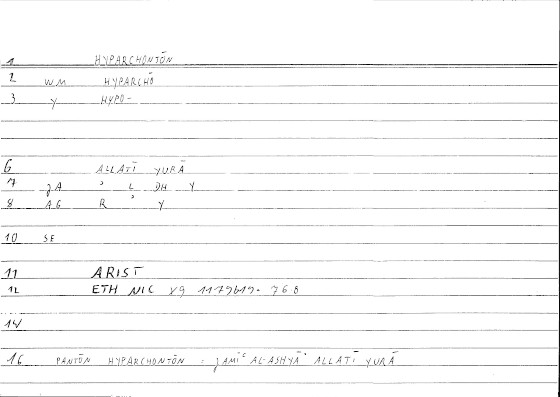 1 HYPARCHONTŌN
2 WM HYPARCHŌ
3 Y HYPO-
6 ALLATĪ YURĀ
7 ʒA ʾ L DH Y
8 AG R ʾ Y
10 SE
11 ARIST
12 ETH NIC Χ9 1179b19-
14
16 PANTŌN HYPARCHONTŌN = ʒAMIʿ AL-ASHYĀʾ ALLATĪ YURĀ